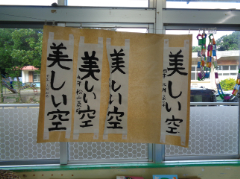 美しい空
美しい空
美しい空
美しい空